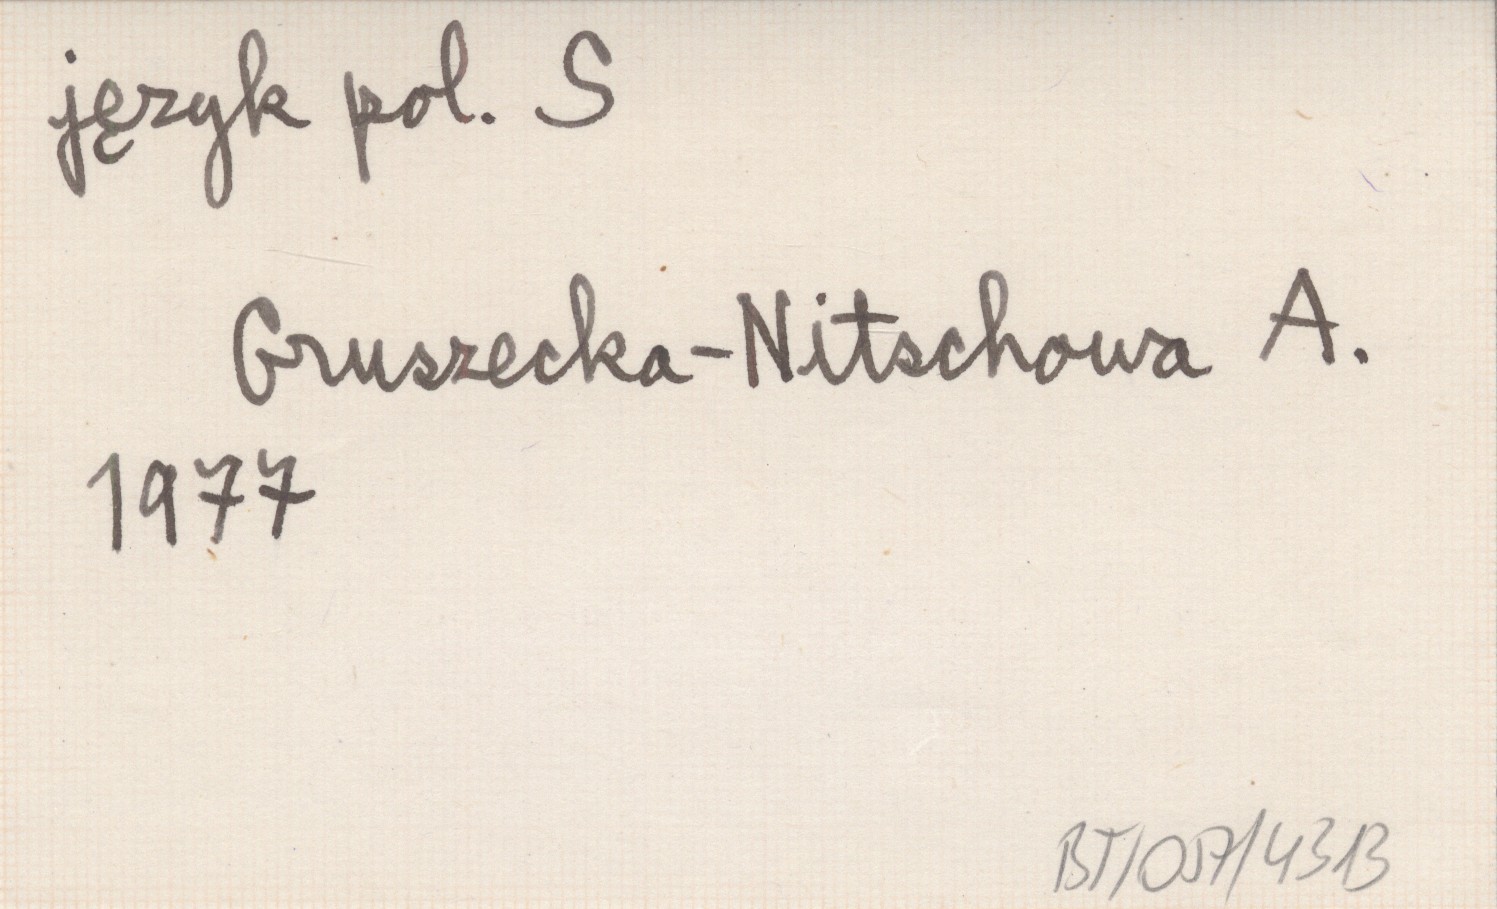 język pol. S
Gruszecka-Nitschowa A.
1977
BT/057/4313